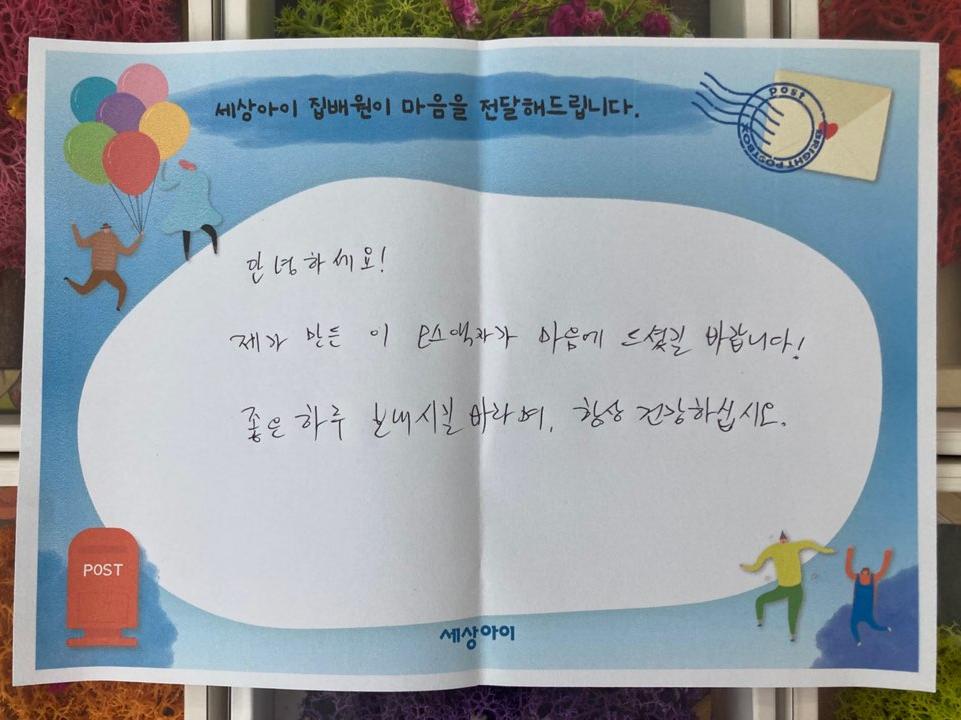 세상아이 집배원이 마음을 전달해드립니다.
post
BRIGHT POSTBOX
안녕하세요!
제가 만든 이 모스액자가 마음에 드셨길 바랍니다!
좋은 하루 보내시길 바라며, 항상 건강하십시오.
POST
세상아이